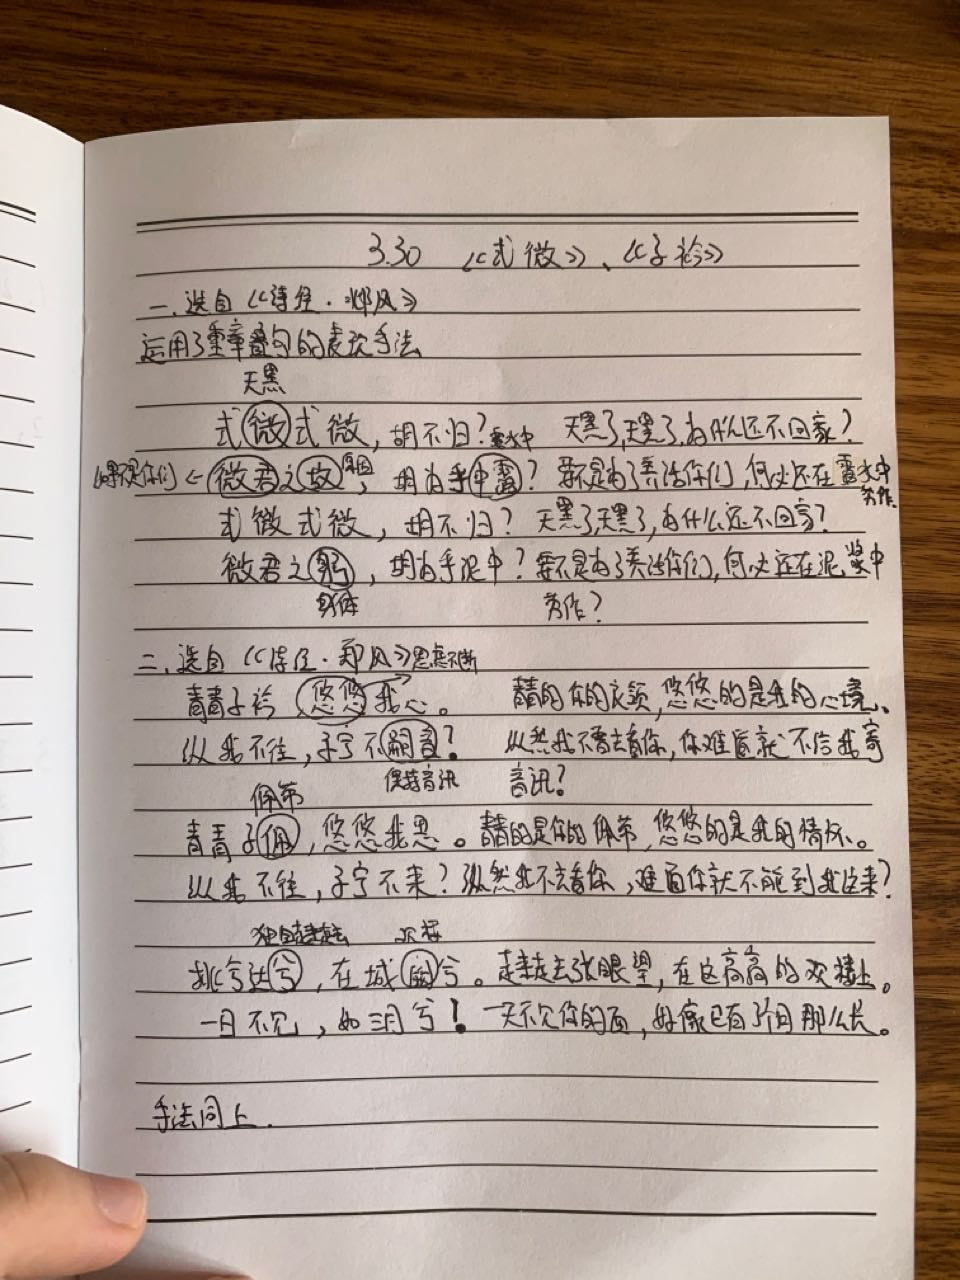 3.30 《式微》、《子衿》
一、选自《诗经·邶风》
运用了重章叠句的表现手法
天黑
式微式微，胡不归？ 天黑了，天黑了，为什么还不回家？
露水中
如果不是你们 ← 微君之故，胡为乎中露？ 要不是为了养活你们，何必还在露水中劳作
原因
式微式微，胡不归？ 天黑了天黑了，为什么还不回家？
微君之躬，胡为乎泥中？要不是为了养活你们，何必还在泥浆中
身体 劳作？
二、选自《诗经·郑风》思虑不断
青青子衿 悠悠我心。 青青的你的衣领，悠悠的是我的心境、
纵我不往，子宁不嗣音？ 纵然我不曾去看你，你难道就不信我寄
保持音讯 音讯？
佩带
青青子佩，悠悠我思。青青的是你的佩带，悠悠的是我的情怀。
纵我不往，子宁不来？纵然我不去看你，难道你就不能到我这来？
独自走来走去
挑兮达兮，在城阙兮。走来走去张眼望，在这高高的观楼上。
一日不见，如三月兮！一天不见你的面，好像已有3个月那么长。
手法同上.